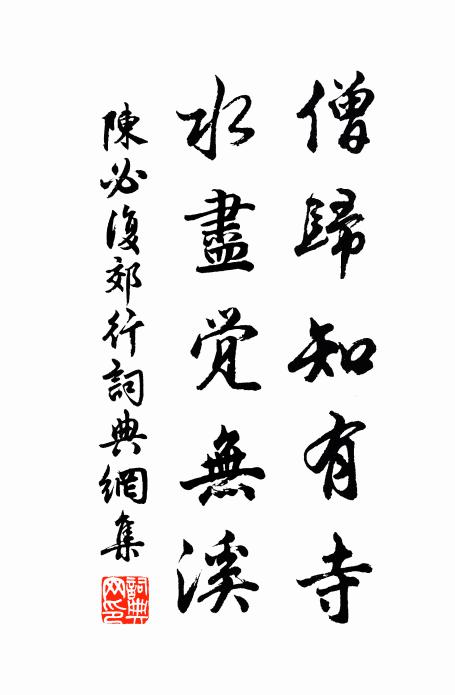 僧歸知有寺
水盡覺無溪
陳必復郊行詞典網集
詞典網印